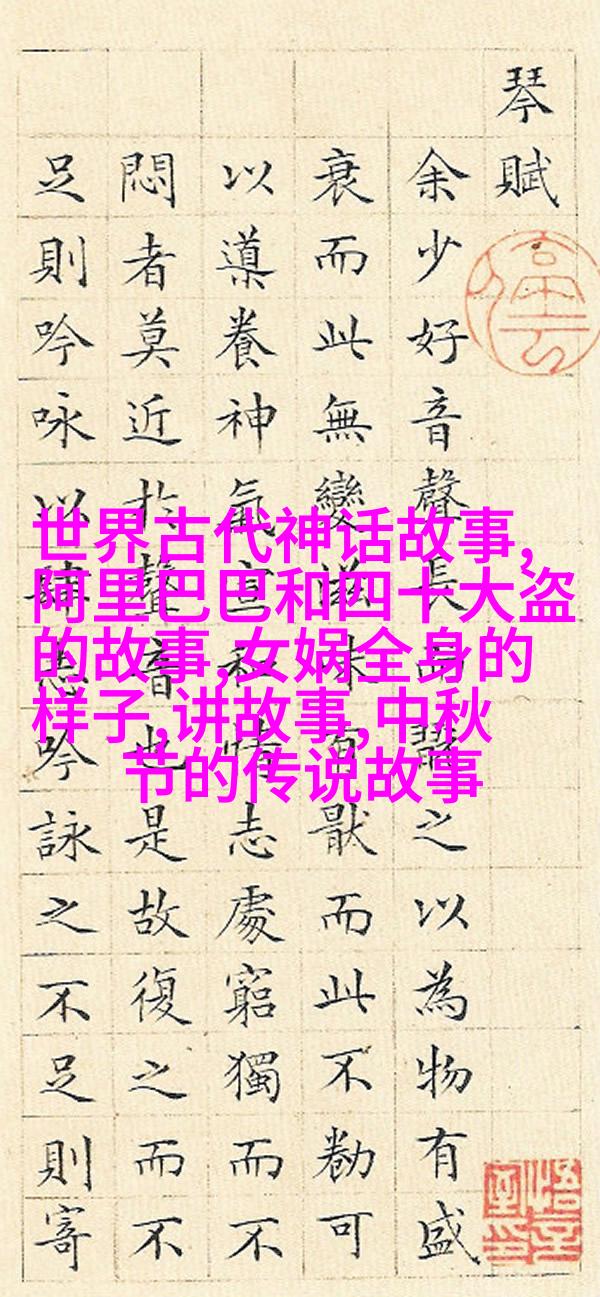 琴賦
余少好音聲長而翫之以為物有盛
衰而此無變滋味有猒而此不勌可
以導養神氣宣和情志處窮獨而不
悶者莫近於聲音也是故復之而不
足則吟咏以肆志吟詠之不足則寄
停雲
悟言室印
世界古代神话故事,
阿里巴巴和四十大盗
的故事,女娲全身的
样子,讲故事,中秋
节的传说故事